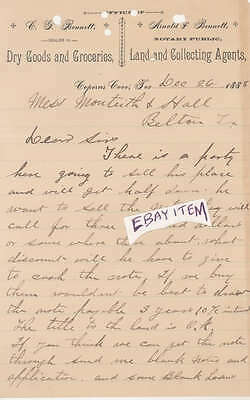 OFFICE OF
C. G. Bennett, Arnold F. Bennett,
DEALER IN NOTARY PUBLIC,
Dry Goods and Groceries, Land and Collecting Agents,
Cypress Cove, Tex Dec 26 1888
Mess Monteith & Hall
Belton Tx
Dear Sirs
There is a party
here going to sell his place
and will get half down. he
want to sell the
call for three hundred dollars
or some where there about. what
discount will he have to give
to cash the note, If we buy
them wouldent be best to draw
the note payable 3 years 10% int
The title to the land is O.K.
If you think we can get the note
through send me blank notes and
application. and some Blank Loans
EBAY ITEM